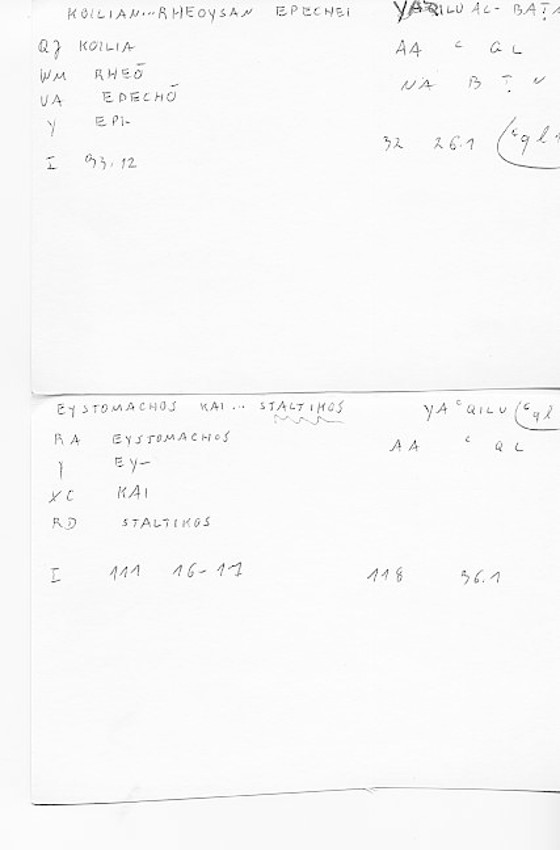 KOILIAN...RHEOYSAN EPECHEI YAʿQILU AL-BAṬN
QJ KOILIA AA ʿ Q L
WM RHEŌ NA B Ṭ N
VA EPECHŌ
Y EPI-
I 93.12 32 26.1 (ʿql
EYSTOMACHOS KAI... STALTIKOS YAʿQILU (ʿql
RA EYSTOMACHOS AA ʿ Q L
Y EY-
XC KAI
RD STALTIKOS
I 111 16-17 118 36.1